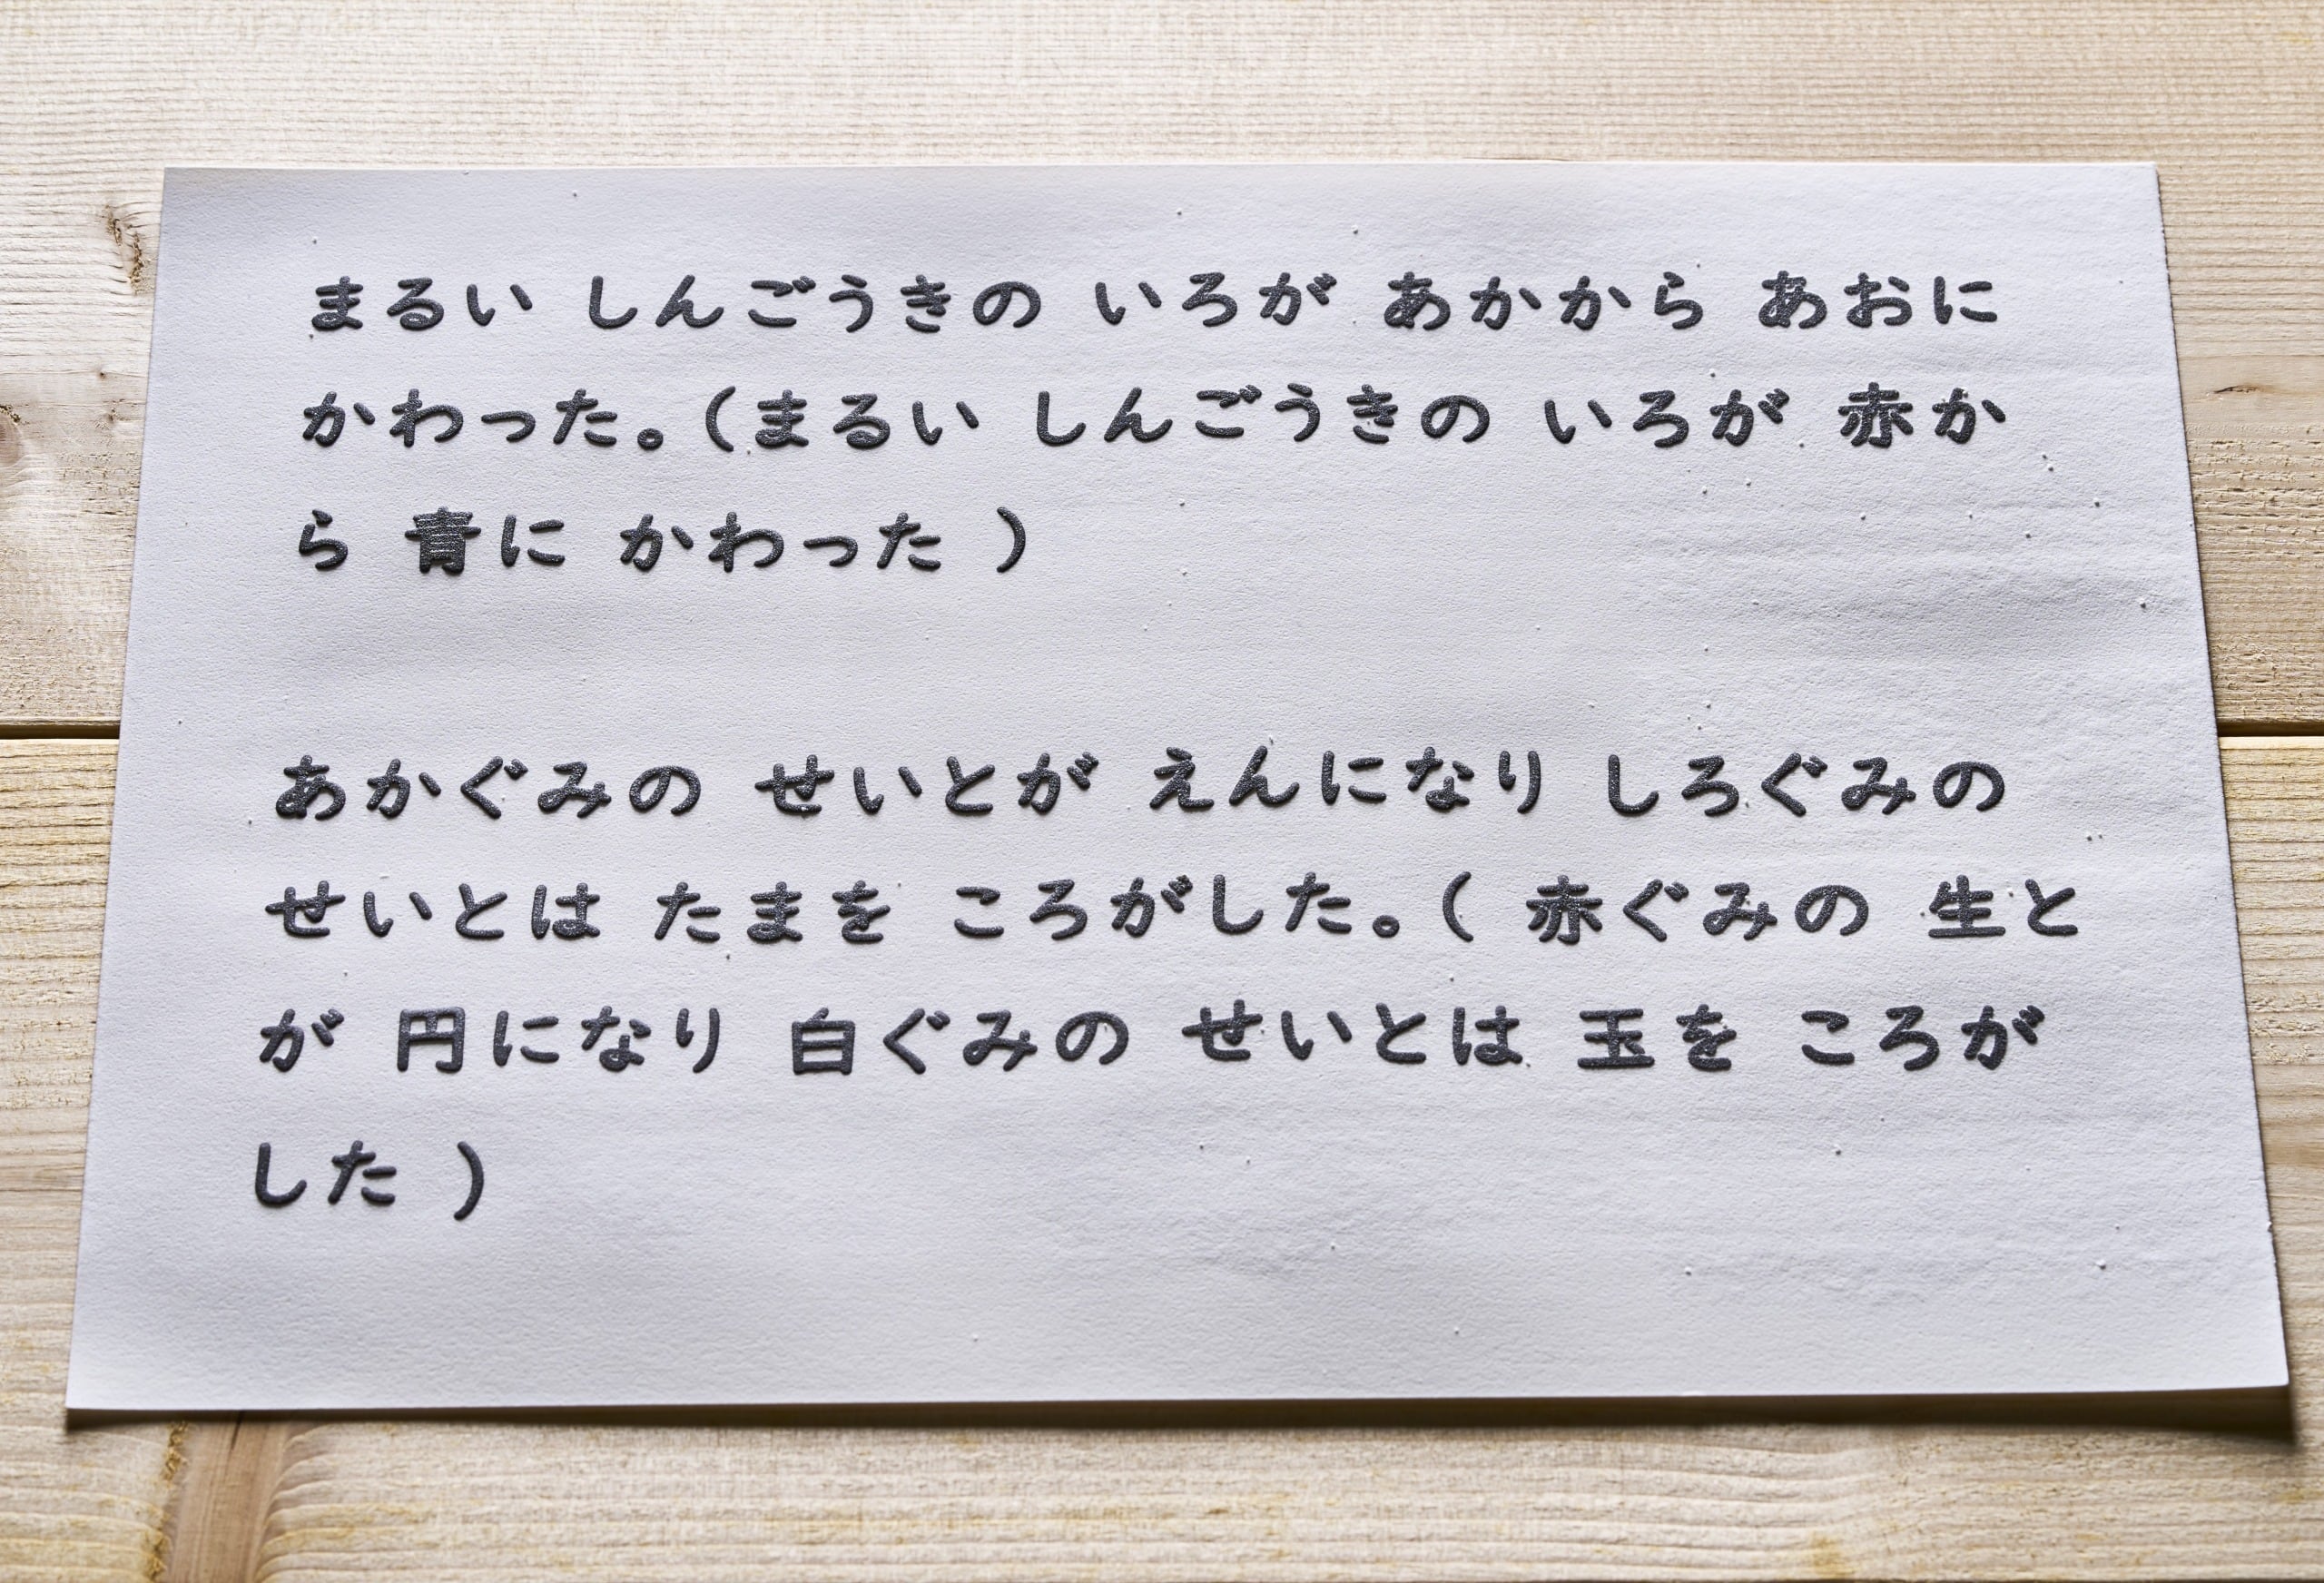 まるい しんごうきの いろが あかから あおに
かわった。(まるい しんごうきの いろが 赤か
ら 青に かわった )
あかぐみの せいとが えんになり しろぐみの
せいとは たまを ころがした。( 赤ぐみの 生と
が 円になり 白ぐみの せいとは 玉を ころが
した )